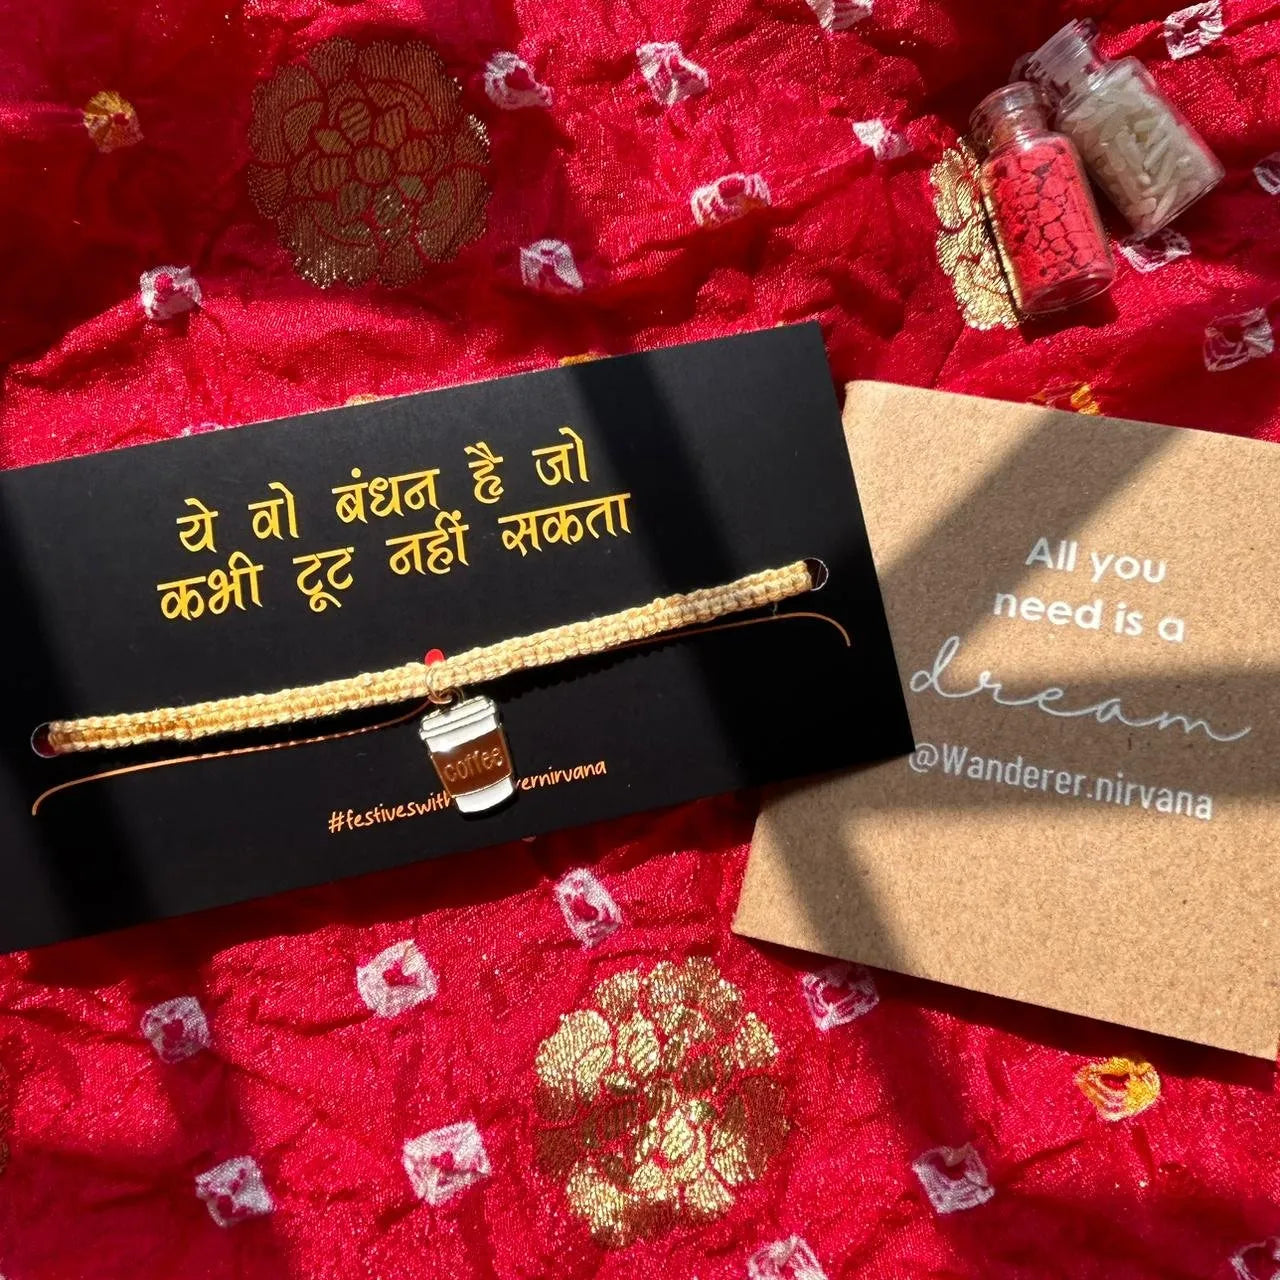 ये वो बंधन है जो
कभी टूट नहीं सकता
coffee
All you
need is a
dream
@Wanderer.nirvana